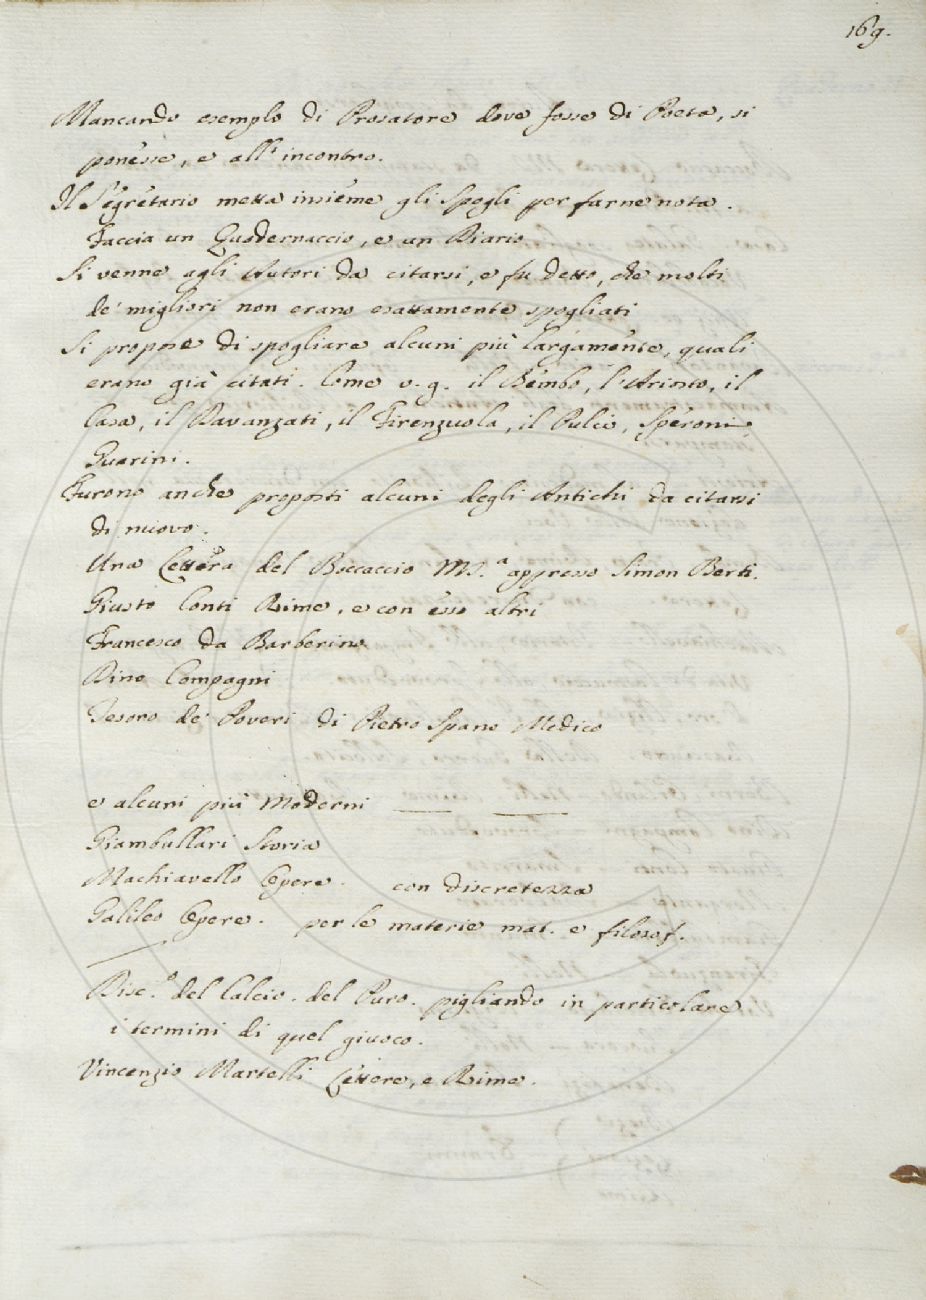 169.
Mancando esemplo di Prosatore dove fosse di Poeta, si
ponesse, e all'incontro.
Il Segretario metta insieme gli Spogli per farne nota.
Faccia un Quadernaccio, e un Diario
Si venne agli Autori da citarsi, e fu detto, che molti
de' migliori non erano esattamente spogliati
Si propose di spogliare alcuni più largamente, quali
erano già citati. Come v.g. il Bembo, l'Ariosto, il
Casa, il Davanzati, il Firenzuola, il Pulci, Speroni,
Guarini.
Furono anche proposti alcuni degli Antichi da citarsi
di nuovo.
Una Lettera del Boccaccio MS.a appresso Simon Berti.
Giusto Conti Rime, e con esso altri
Francesco da Barberino
Dino Compagni
Tesoro de' Poveri di Pietro Spano Medico
e alcuni più Moderni
Giambullari Storia
Machiavello Opere. con discretezza
Galileo Opere. per le materie mat. e filosof.
Disc.o del Calcio. del Puro. pigliando in particolare
i termini di quel giuoco.
Vincenzio Martelli Lettere, e Rime.